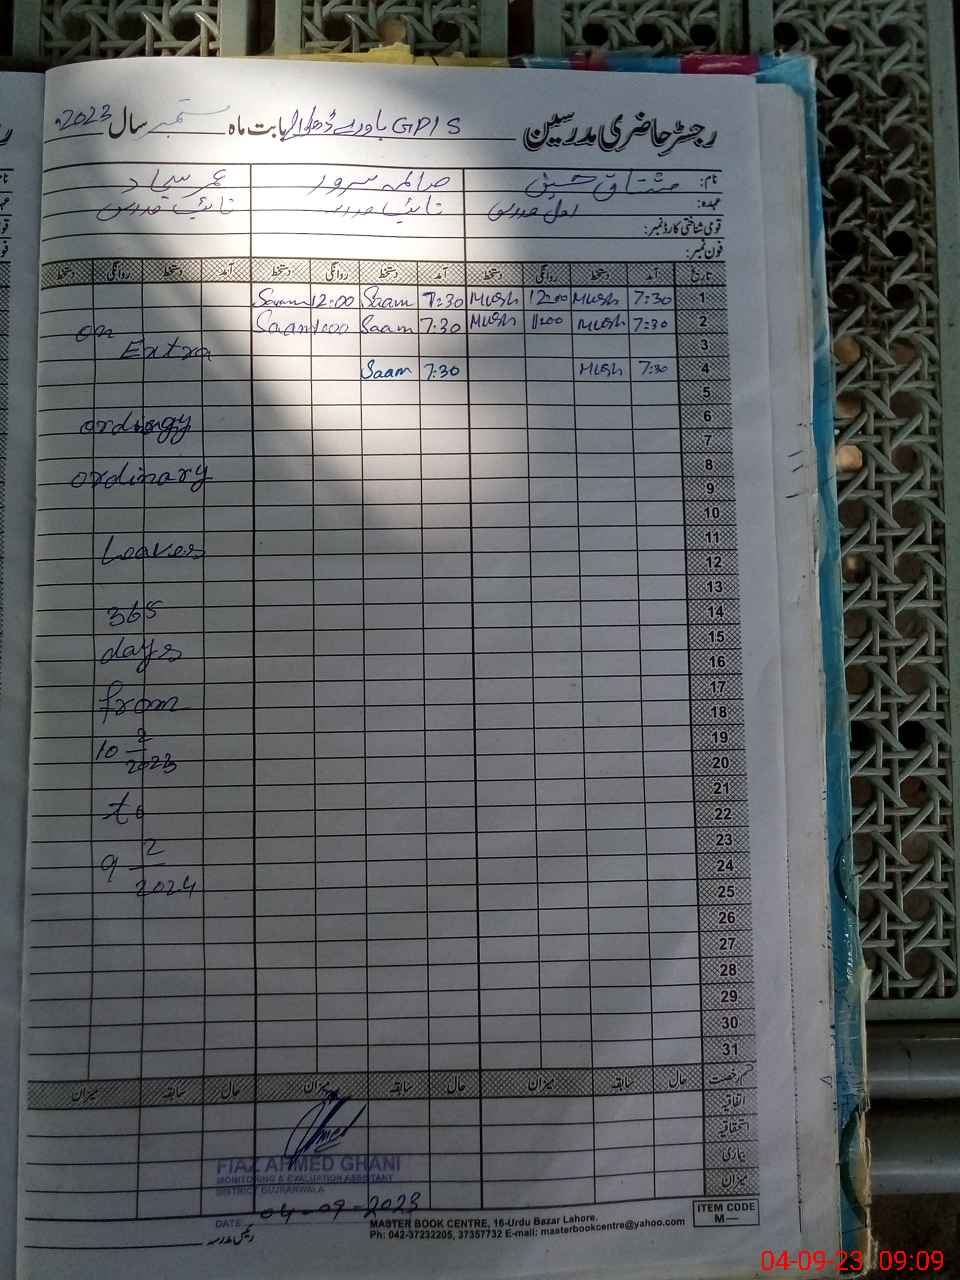 رجسٹر حاضری مدرسین GPIS بابت ماہ ستمبر سال 2023ء
نام: مشتاق حسین صائمہ سرور عمر سجاد
عہدہ: اول مدرس نائب مدرس نائب مدرس
قومی شناختی کارڈ نمبر:
فون نمبر:
تاریخ آمد دستخط روانگی دستخط آمد دستخط روانگی دستخط آمد دستخط روانگی دستخط
1 7:30 Mush 12:00 Mush 7:30 Saam 12:00 Saam
2 7:30 Mush 11:00 Mush 7:30 Saam 11:00 Saam on
3 Extra
4 7:30 Mush 7:30 Saam
5
6 ordinary
7
8 ordinary
9
10
11 Leaves
12
13
14 365
15 days
16
17 from
18
19 10 2/2023
20
21
22 to
23
24 9 2/2024
25
26
27
28
29
30
31
قسم رخصت حال سابقہ میزان حال سابقہ میزان حال سابقہ میزان
اتفاقیہ
استحقاقیہ
بیماری
میزان
FIAZ AHMED GHANI
MONITORING & EVALUATION ASSISTANT
DISTRICT GUJRANWALA
DATE: 04-09-2023
رئیس مدرسہ
MASTER BOOK CENTRE, 16-Urdu Bazar Lahore.
Ph: 042-37232205, 37357732 E-mail: masterbookcentre@yahoo.com
ITEM CODE
M—
04-09-23 09:09